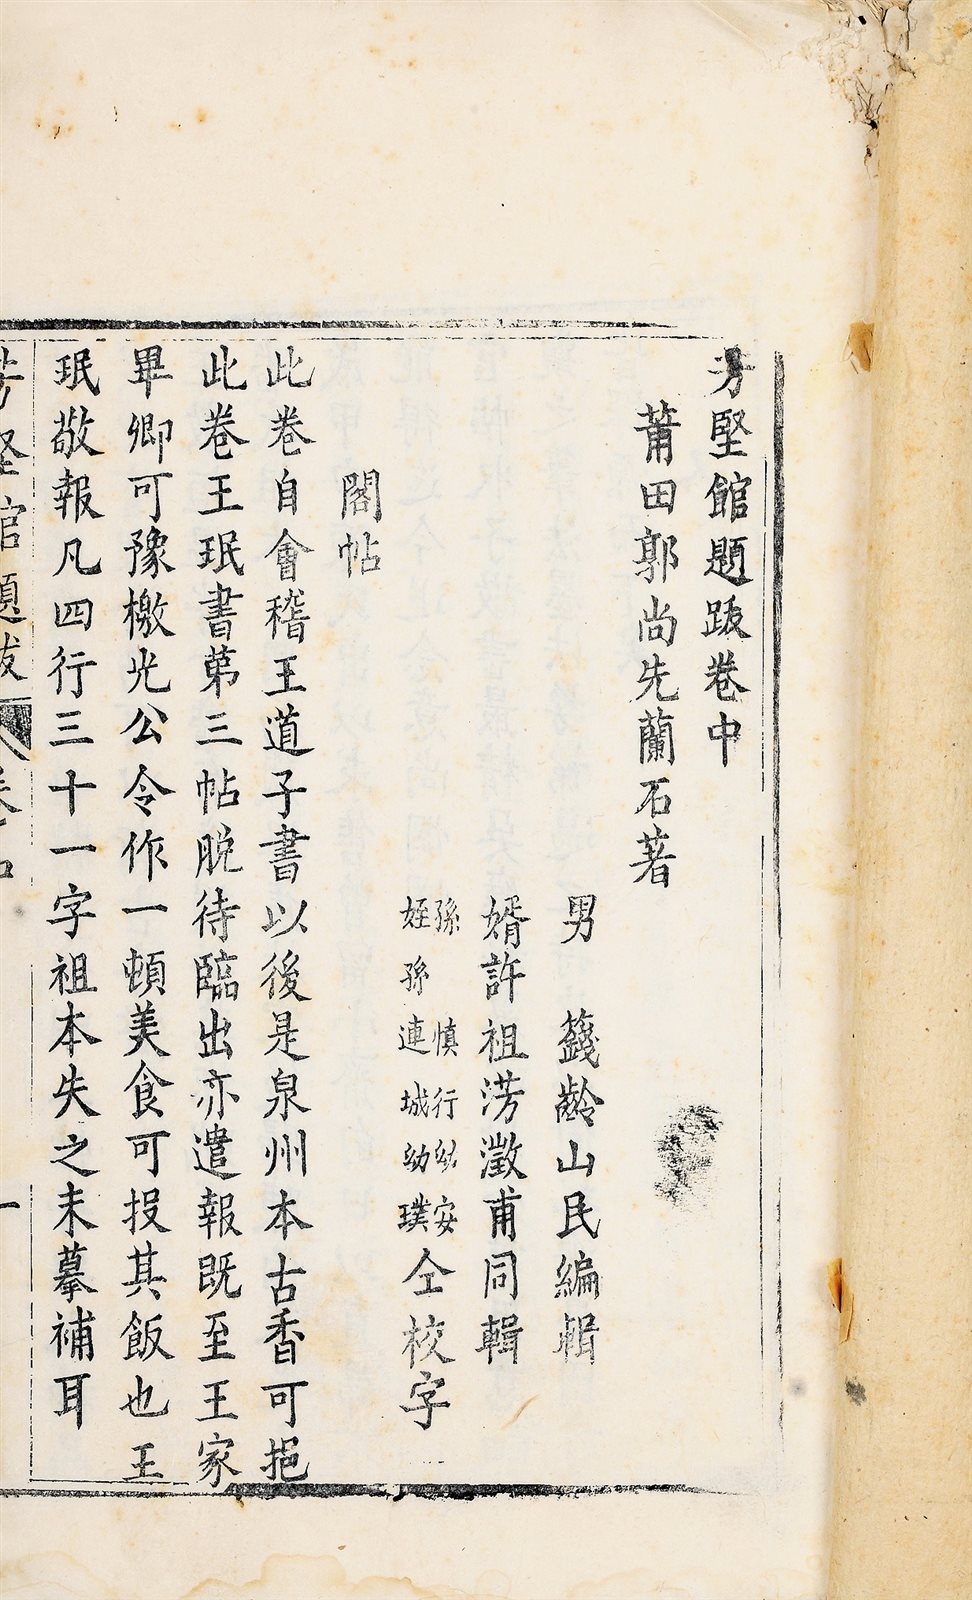 芳堅館題跋卷中
莆田郭尚先蘭石著
男　籛齡山民編輯
婿許祖澇瀓甫同輯
孫　慎行幼安
姪孫連城幼璞仝校字
閣帖
此卷自會稽王道子書以後是泉州本古香可挹
此卷王珉書第三帖脫待臨出亦遣報既至王家
畢卿可豫檄光公令作一頓美食可投其飯也王
珉敬報凡四行三十一字祖本失之未摹補耳
芳堅館題跋 卷中 一